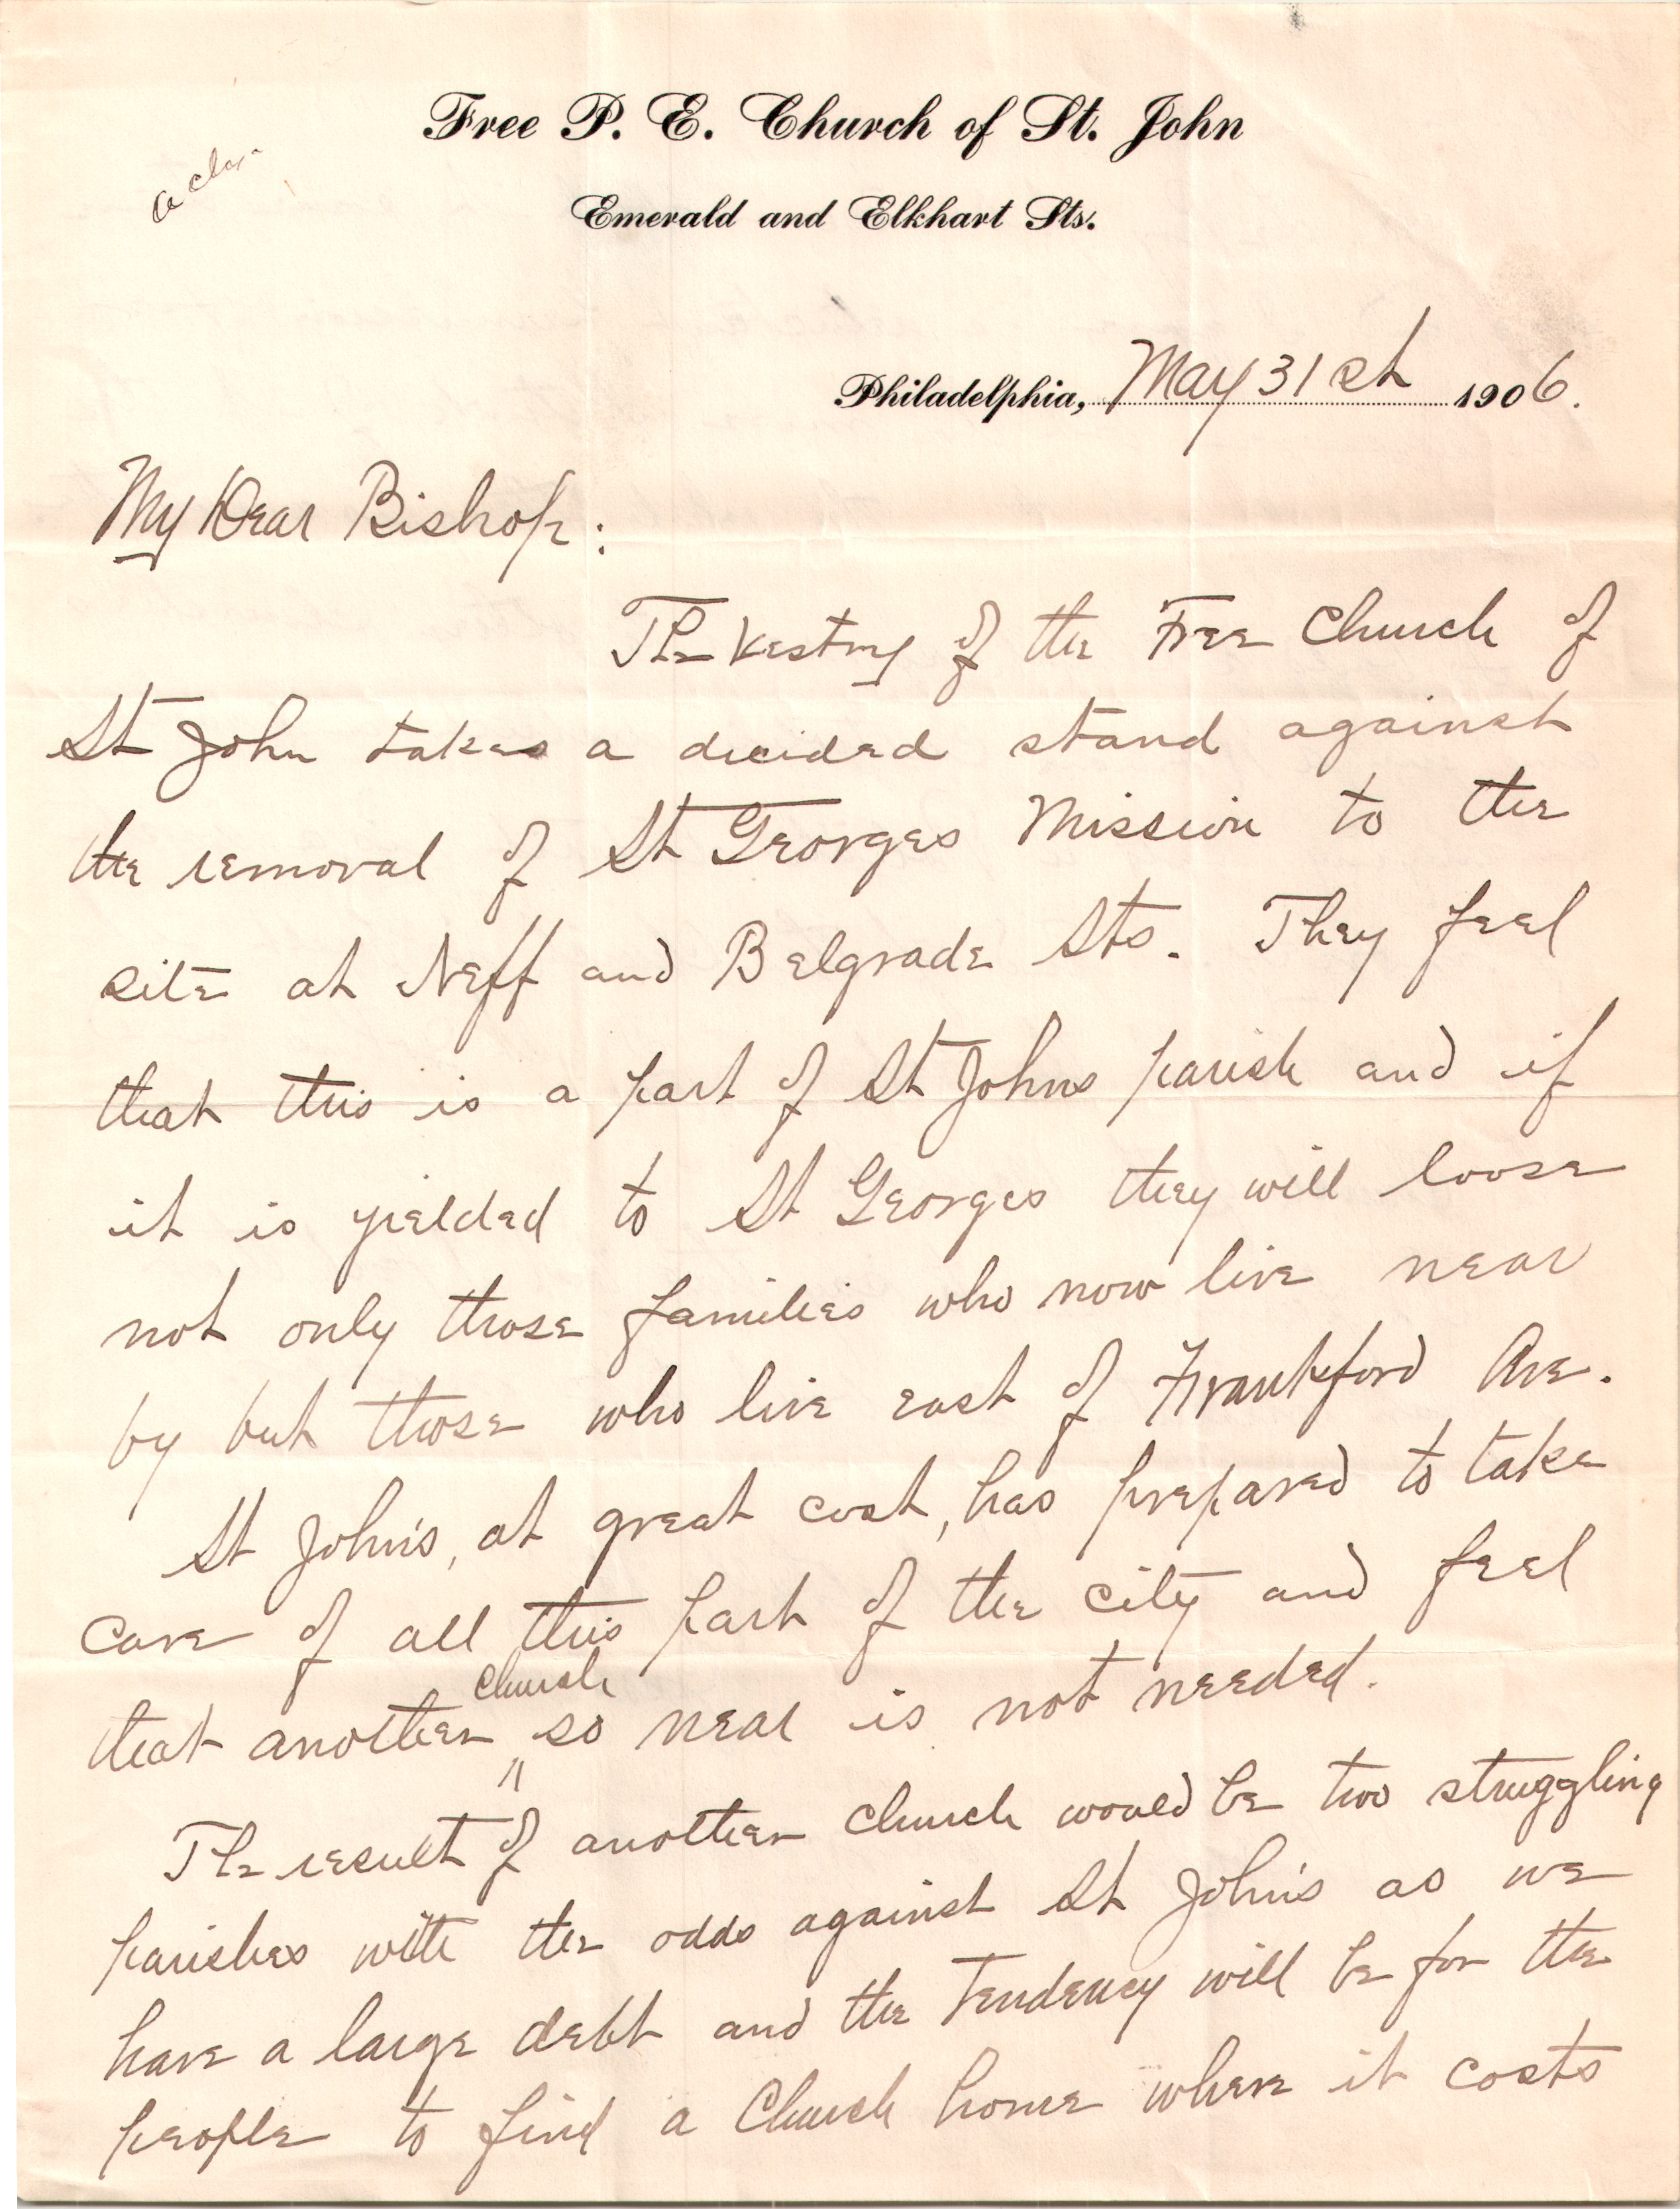 Free P. E. Church of St. John
Emerald and Elkhart Sts.
Philadelphia, May 31st 1906.
My Dear Bishop:
The Vestry of the Free Church of
St John takes a decided stand against
the removal of St Georges Mission to the
site at Neff and Belgrade Sts. They feel
that this is a part of St Johns parish and if
it is yielded to St Georges they will loose
not only those families who now live near
by but those who live east of Frankford Ave.
St John's, at great cost, has prepared to take
care of all this part of the city and feel
church
that another so near is not needed.
The result of another church would be two struggling
parishes with the odds against St John's as we
have a large debt and the tendency will be for the
people to find a Church home where it costs